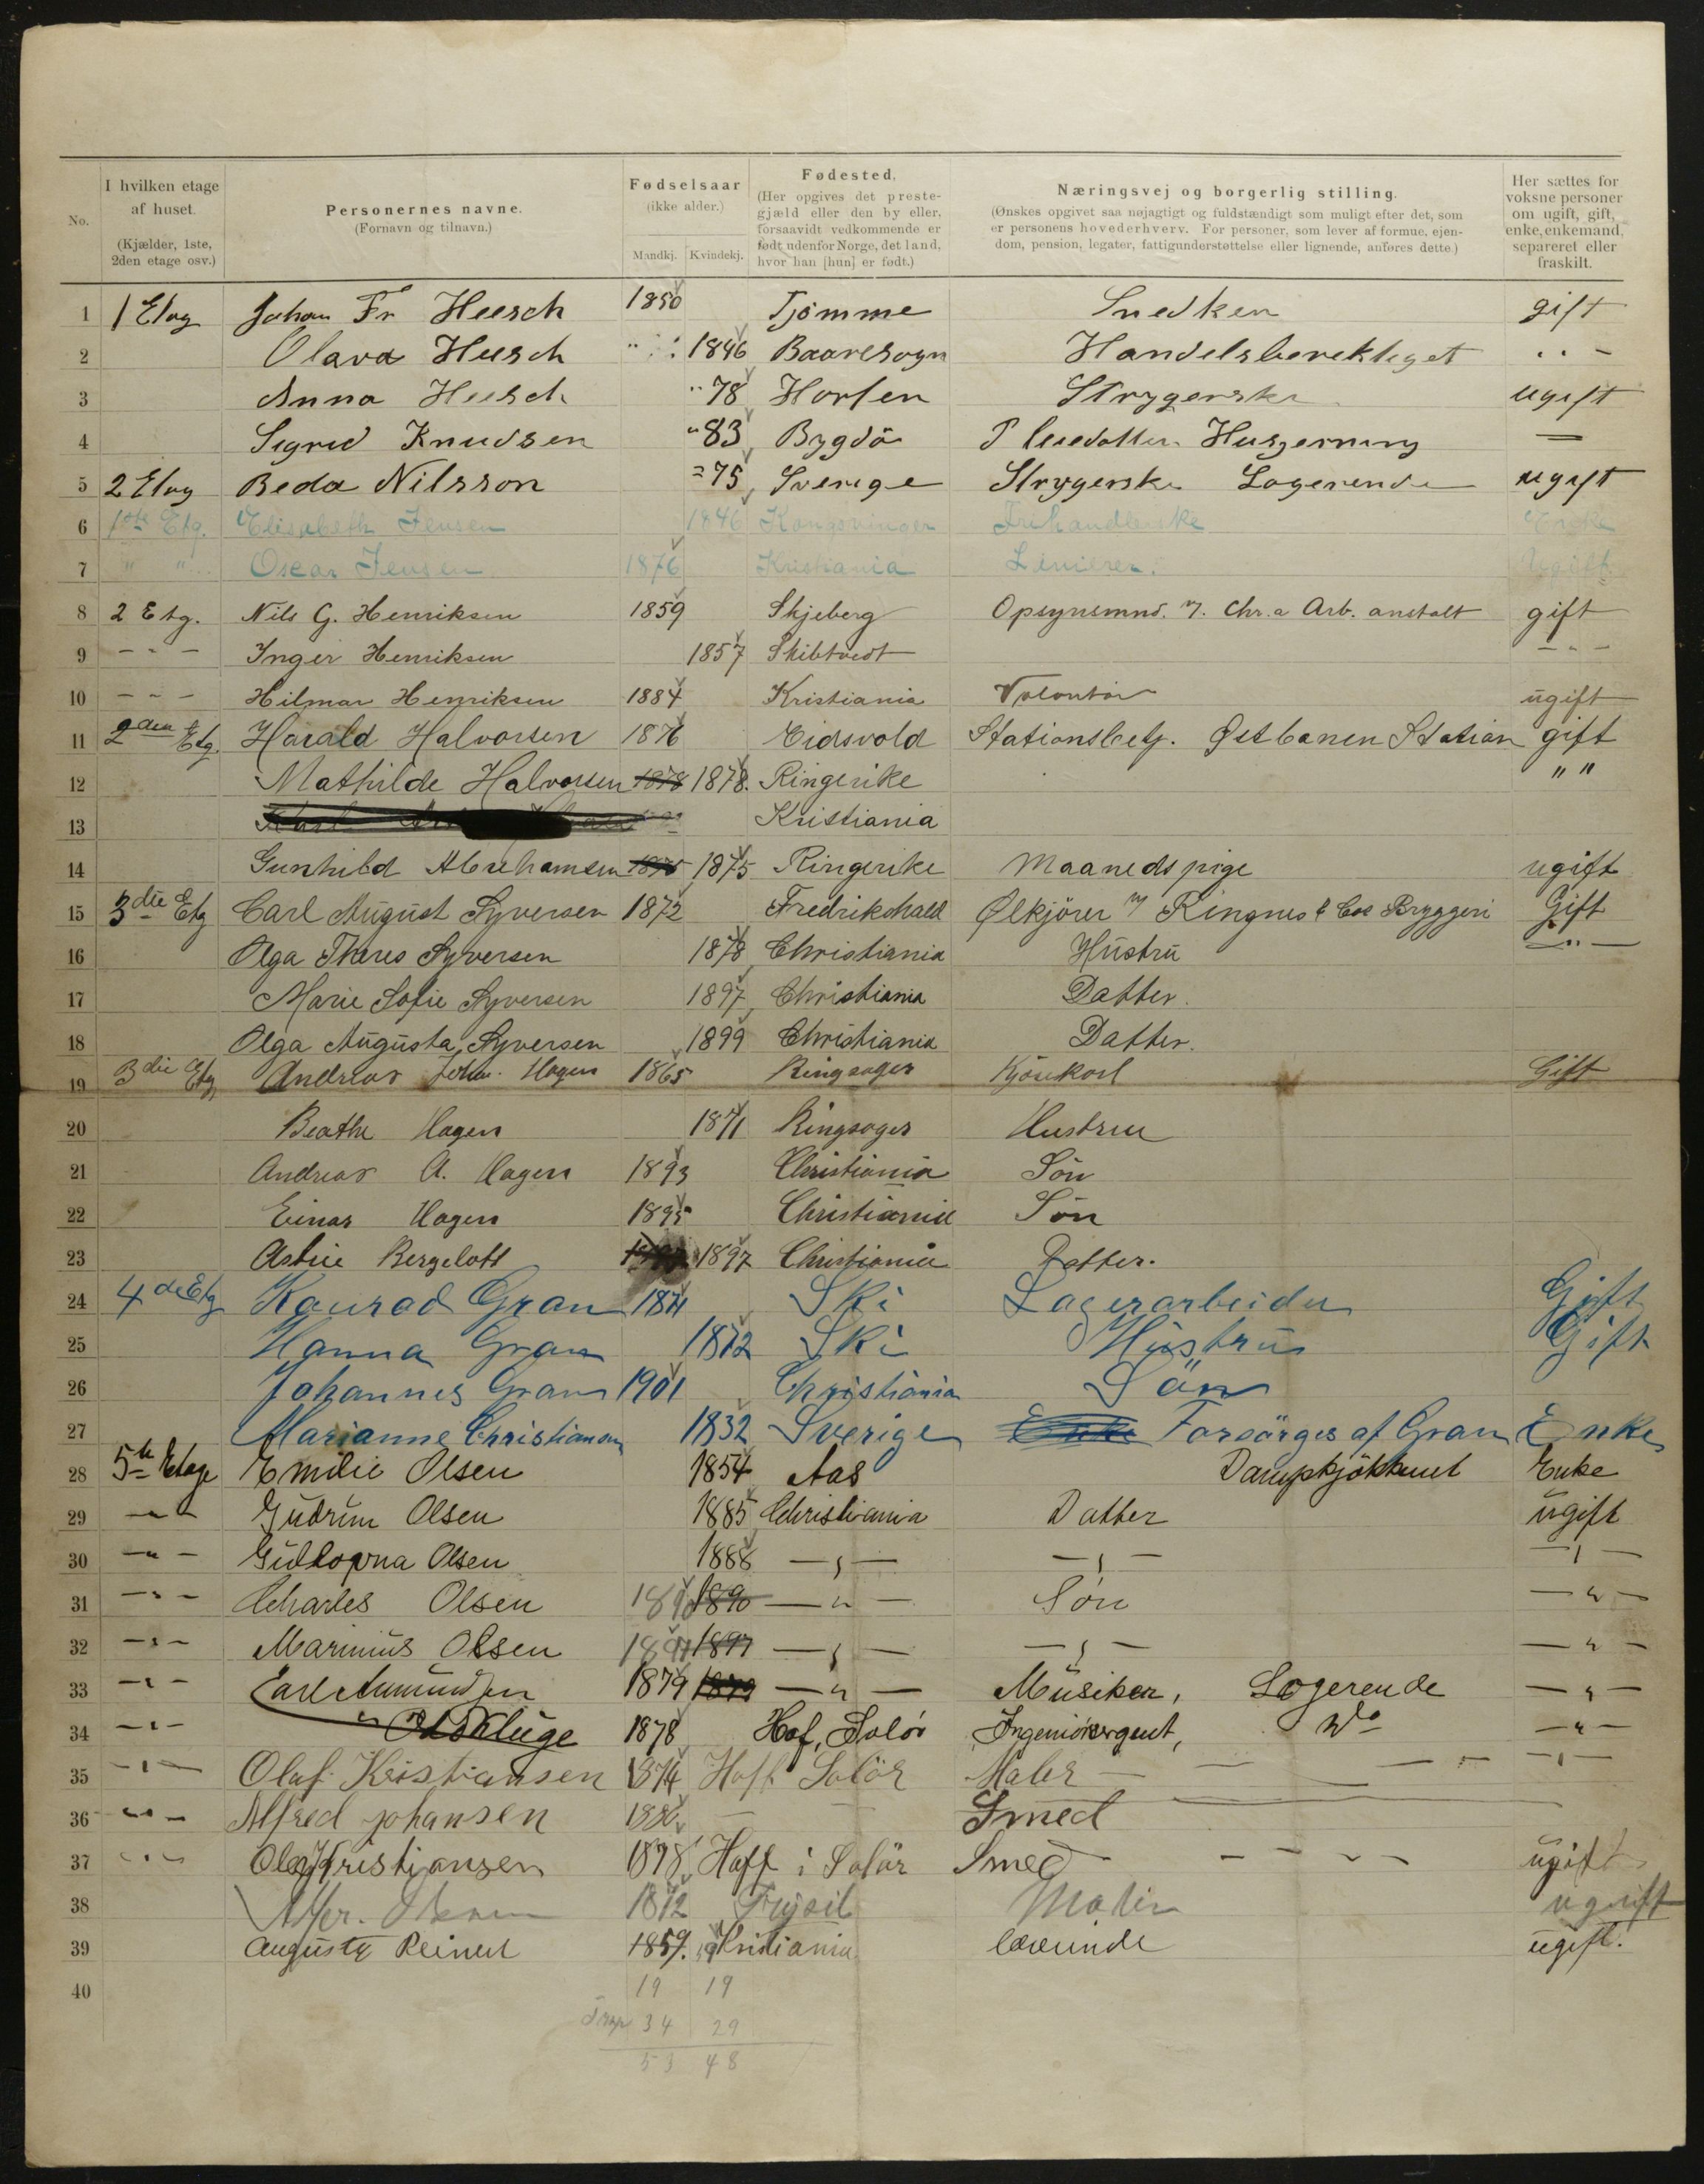 No.
I hvilken etage af huset. (Kjælder, 1ste, 2den etage osv.)
Personernes navne. (Fornavn og tilnavn.)
Fødselsaar (ikke alder.) Mandkj. Kvindekj.
Fødested. (Her opgives det prestegjæld eller den by eller, forsaavidt vedkommende er født udenfor Norge, det land, hvor han [hun] er født.)
Næringsvej og borgerlig stilling. (Ønskes opgivet saa nøjagtigt og fuldstændigt som muligt efter det, som er personens hovederhverv. For personer, som lever af formue, ejendom, pension, legater, fattigunderstøttelse eller lignende, anføres dette.)
Her sættes for voksne personer om ugift, gift, enke, enkemand, separeret eller fraskilt.
1 1 Etag Johan Fr Heesch 1850 Tjömme Snedker gift
2 Olava Heesch 1846 Handelsberektiget " -
3 Anna Heesch " 78 Horten Strygerske ugift
4 Sigrid Knudsen " 83 Bygdö Pleiedatter Husgerning —
5 2 Etag Beda Nilsson = 75 Sverige Strygerske Logerende ugift
6 1ste Etg. Elisabeth Jensen 1846 Kongsvinger Enke
7 " " Oscar Jensen 1876 Kristiania Linierer. Ugift
8 2 Etg. Nils G. Henriksen 1859 Skjeberg Opsynsmnd. v. Chr.a Arb. anstalt gift
9 - " - Inger Henriksen 1857 Skibtvedt - " -
10 - - - Hilmar Henriksen 1884 Kristiania Volontör ugift
11 2den Etg. Harald Halvorsen 1876 Eidsvold Stationsbetj. Østbanen Station gift
12 Mathilde Halvorsen 1878 1878. Ringerike " "
13 Kristiania
14 Gunhild Abrehamsen 1875 1875 Ringerike Maanedspige ugift
15 3die Etg Carl August Syversen 1872 Fredrikshald Ølkjörer v/ Ringnes & Coe Bryggeri Gift
16 Olga Theres Syversen 1878 Christiania Hustru — " —
17 Marie Sofie Syversen 1897 Christiania Datter.
18 Olga Augusta Syversen 1899 Christiania Datter.
19 3die Etg Andreas Johan. Hagen 1865 Ringsager Kjörekarl Gift
20 Beathe Hagen 1871 Ringsager Hustru
21 Andreas A. Hagen 1893 Christiania Sön
22 Einar Hagen 1895 Christiania Sön
23 1897 Christiania Datter.
24 4de Etg Konrad Gran 1871 Ski Lagerarbeider Gift
25 Hanna Gran 1872 Ski Hustru Gift
26 Johannes Gran 1901 Christiania Sön
27 Marianne Christiansen 1832 Sverige Enke Forsörges af Gran Enke
28 5te Etage Emilie Olsen 1854 Aas Dampkjökkenet Enke
29 — " — Gudrun Olsen 1885 Christiania Datter ugift
30 — " — Olsen 1888 — " — — " — — " —
31 — " — Charles Olsen 1890 1890 — " — Sön — " —
32 — " — Marinius Olsen 1897 1897 — " — — " — — " —
33 — " — Carl Amundsen 1879 1879 — " — Musiker, Logerende — " —
34 — " — 1878 Hof, Solör Ingeniöragent, Do — " —
35 — " — Olaf Kristiansen 1874 Hoff Solör Maler — " —
36 — " — Alfred Johansen Smed
37 — " — Kristiansen 1878 Hoff i Solör Smed - - - - ugift
38 1872 Trysil ugift
39 Augusta Reinert 1859. Kristiania lærerinde ugift.
40 19 19
34 29
53 48